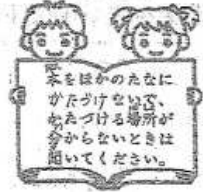 本をほかのたなに
かたづけないで、
かたづける場所が
分からないときは
聞いてください。